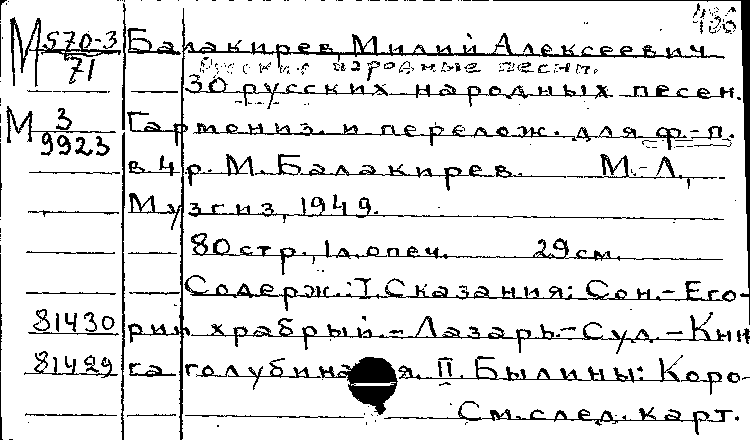 436
М 570-3/71 Балакирев, Милий Алексеевич
Русские народные песни.
30 русских народных песен.
М 3/9923 Гармониз. и перелож. для ф.-п.
в 4 р. М. Балакирев. М.-Л.,
Музгиз, 1949.
80 стр., 1 л. опеч. 29 см.
Содерж.: I. Сказания: Сон.- Его-
81430 рий храбрый.- Лазарь.- Суд.- Кни
81429 га голубиная. II. Былины: Коро-
См. след. карт.